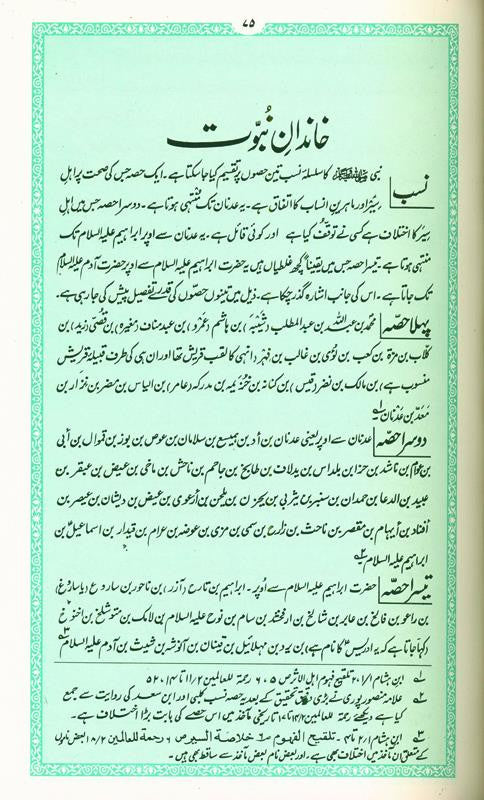 ۷۵
خاندانِ نبوّت
نسب
نبی ﷺ کا سلسلۂ نسب تین حصوں پر تقسیم کیا جاسکتا ہے۔ ایک حصہ جس کی صحت پر اہلِ
سِیَر اور ماہرینِ انساب کا اتفاق ہے۔ یہ عدنان تک منتہی ہوتا ہے۔ دوسرا حصہ جس میں اہلِ
سِیَر کا اختلاف ہے کسی نے توقف کیا ہے اور کوئی قائل ہے۔ یہ عدنان سے اوپر ابراہیم علیہ السلام تک
منتہی ہوتا ہے۔ تیسرا حصہ جس میں یقیناً کچھ غلطیاں ہیں یہ حضرت ابراہیم علیہ السلام سے اوپر حضرت آدم علیہ السلام
تک جاتا ہے۔ اس کی جانب اشارہ گزر چکا ہے۔ ذیل میں تینوں حصوں کی قدرے تفصیل پیش کی جارہی ہے۔
پہلا حصہ محمدؐ بن عبداللہ بن عبدالمطلب (شَیْبَہ) بن ہاشم (عَمرو) بن عبد مناف (مغیرہ) بن قُصَیّ (زید) بن
کلاب بن مرّہ بن کعب بن لُوَیّ بن غالب بن فہر (انہی کا لقب قریش تھا اور ان ہی کی طرف قبیلۂ قریش
منسوب ہے) بن مالک بن نضر (قیس) بن کنانہ بن خُزَیمہ بن مدرکہ (عامر) بن الیاس بن مضر بن نزار بن
مَعَدّ بن عدنان ؎۱
دوسرا حصہ عدنان سے اوپر یعنی عدنان بن اُد بن ہمیسع بن سلامان بن عوص بن بوز بن قموال بن اُبی
بن عوّام بن ناشد بن حزا بن بلداس بن یدلاف بن طابخ بن جاحم بن ناحش بن ماخی بن عیض بن عبقر بن
عبید بن الدعا بن حمدان بن سنبر بن یثربی بن یحزن بن یلحن بن ارعوی بن عیض بن دیشان بن عیصر بن
افناد بن ایہام بن مقصر بن ناحث بن زارح بن سمی بن مزی بن عوضہ بن عرام بن قیدار بن اسماعیل بن
ابراہیم علیہ السلام ؎۲
تیسرا حصہ حضرت ابراہیم علیہ السلام سے اوپر۔ ابراہیم بن تارح (آزر) بن ناحور بن ساروع (یا ساروغ)
بن راعو بن فالخ بن عابر بن شالخ بن ارفخشد بن سام بن نوح علیہ السلام بن لامک بن متوشلخ بن اخنوخ
(کہا جاتا ہے کہ یہ ادریسؑ کا نام ہے) بن یرد بن مہلائیل بن قینان بن آنوشہ بن شیث بن آدم علیہ السلام ؎۳
؎۱ ابن ہشام ۱/۱،۲ تلقیح فہوم اہل الاثر ص ۵، ۶ رحمۃ للعالمین ۲/۱۱ تا ۱۴، ۵۲
؎۲ علامہ منصور پوری نے بڑی دقیق تحقیق کے بعد یہ حصہ نسب کلبی اور ابن سعد کی روایت سے جمع
کیا ہے دیکھئے رحمۃ للعالمین ۲/۱۴ تا ۱۷ تاریخی مآخذ میں اس حصے کی بابت بڑا اختلاف ہے۔
؎۳ ابن ہشام ۱/۲ تا ۴۔ تلقیح الفہوم ص ۶ خلاصۃ السیر ص ۶ رحمۃ للعالمین ۲/۱۸ بعض ناموں
کے متعلق ان مآخذ میں اختلاف بھی ہے۔ اور بعض نام بعض مآخذ سے ساقط بھی ہیں۔